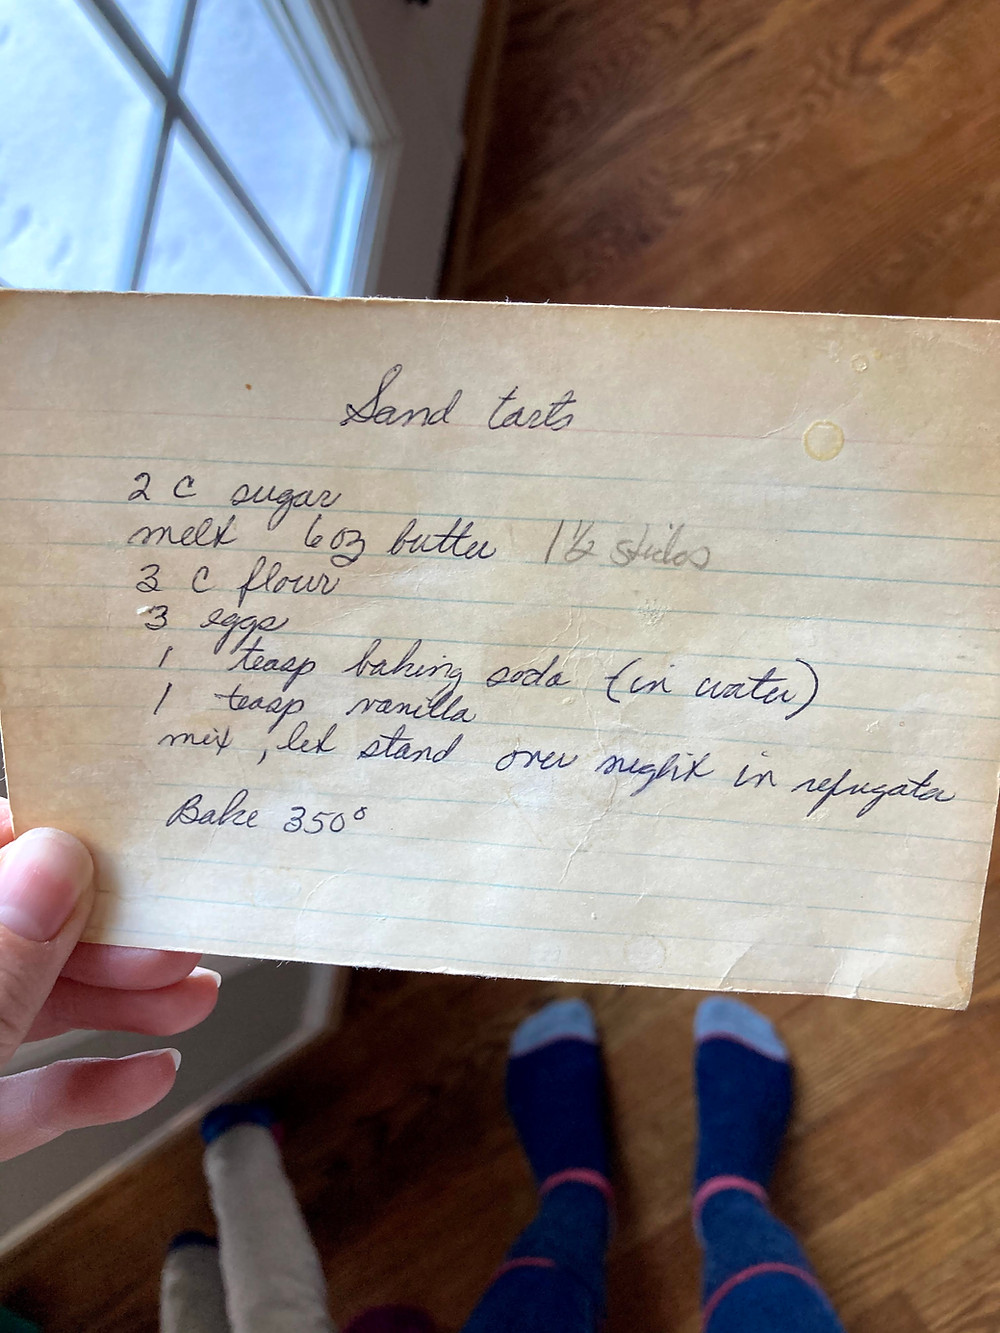 Sand tarts
2 c sugar
melt 6 oz butter 1 1/2 sticks
3 c flour
3 eggs
1 teasp baking soda (in water)
1 teasp vanilla
mix, let stand over night in refugater
Bake 350°